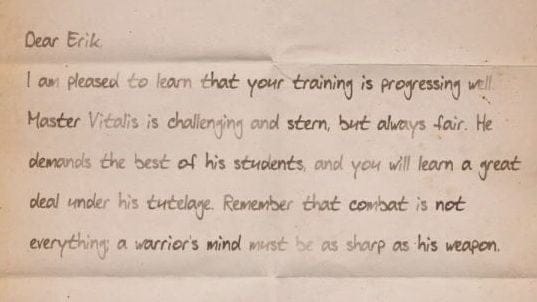 Dear Erik,
I am pleased to learn that your training is progressing well.
Master Vitalis is challenging and stern, but always fair. He
demands the best of his students, and you will learn a great
deal under his tutelage. Remember that combat is not
everything; a warrior's mind must be as sharp as his weapon.